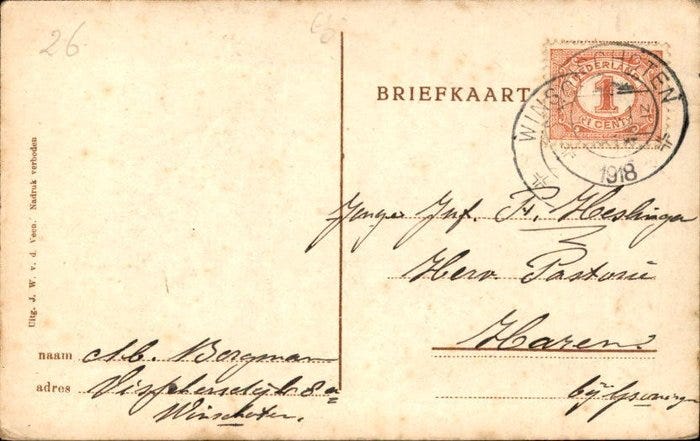 26
BRIEFKAART
NEDERLAND
1
CENT
WINSCHOTEN
1918
Uitg. J. W. v. d. Veen. Nadruk verboden
Jonge Juf. F. Heslinga
Herv. Pastorie
Haren.
bij Groningen
naam Ab. Bergman
adres Visschersdijk 8a
Winschoten.